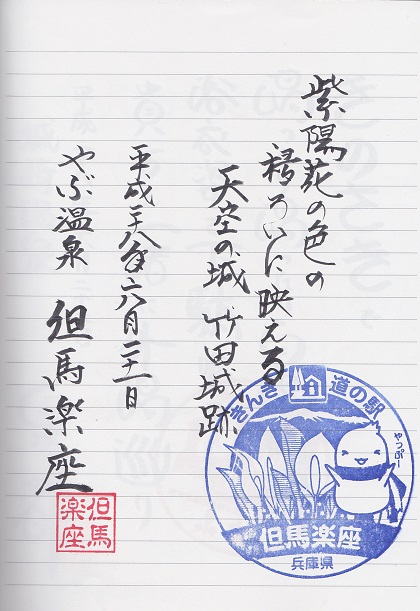 紫陽花の色の
移ろいに映える
天空の城 竹田城跡
平成二十八年六月二十一日
やぶ温泉 但馬楽座
但馬
楽座
きんき 道の駅
やっぷー
但馬楽座
兵庫県